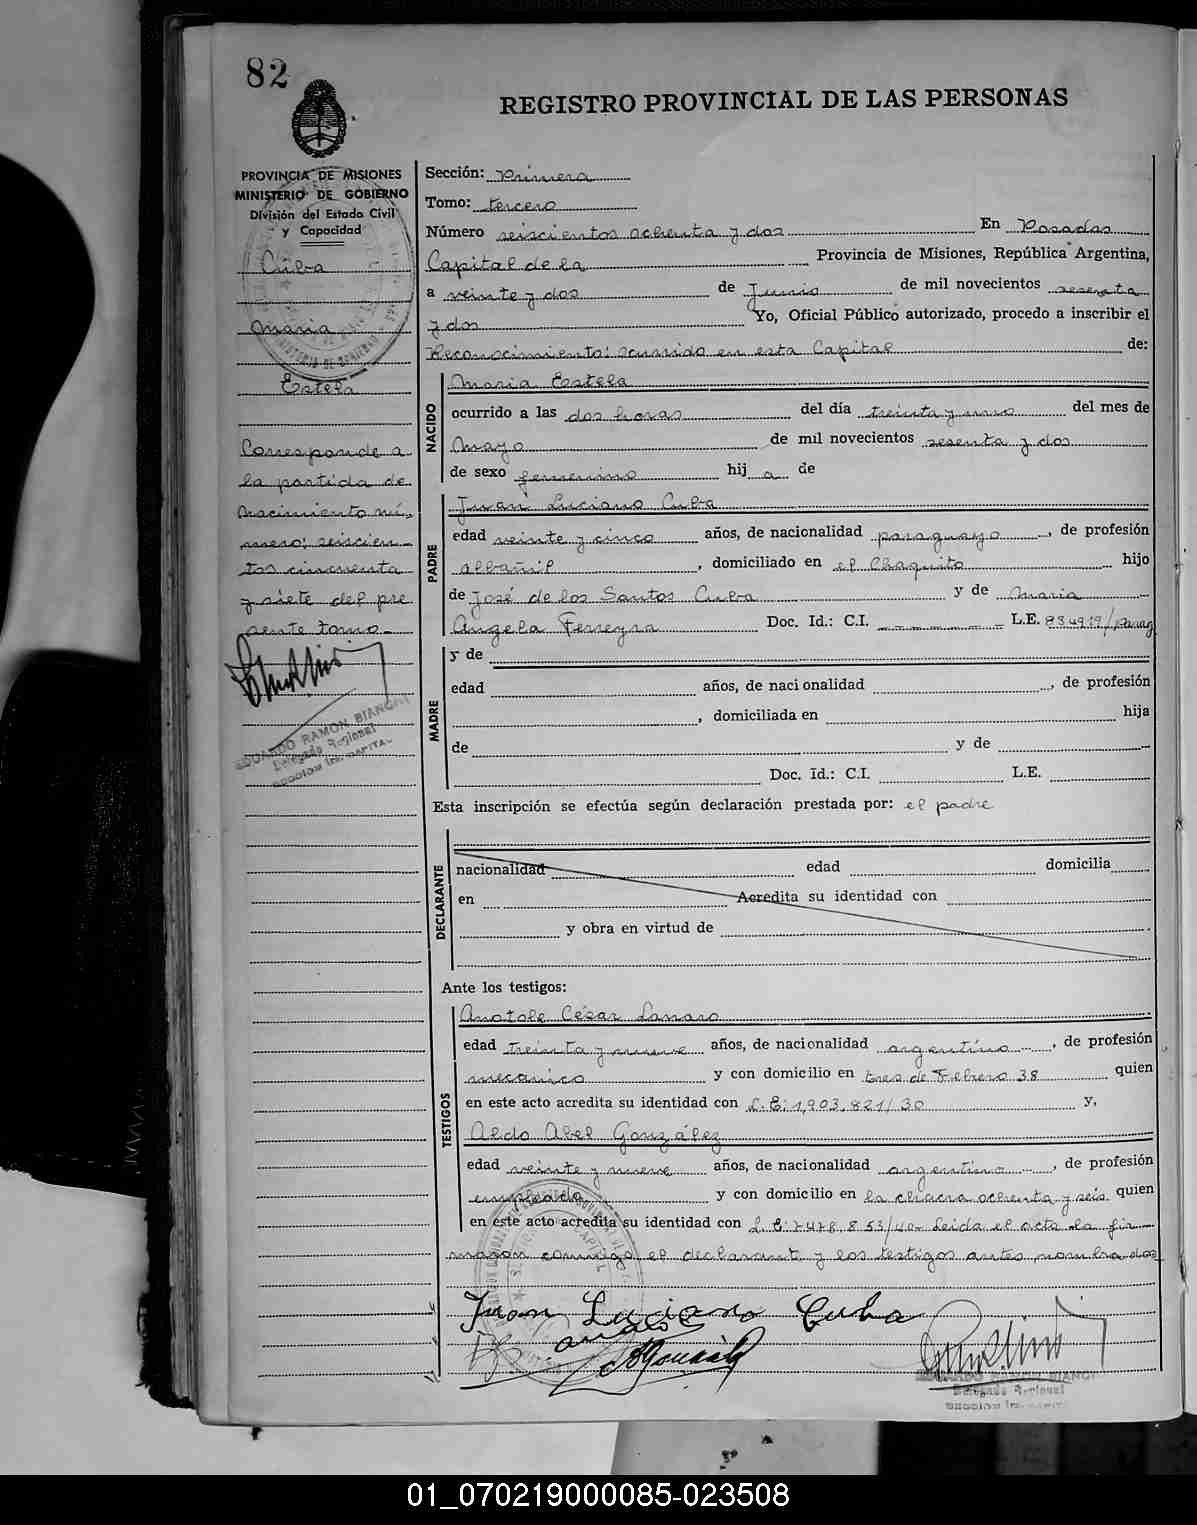 82
REGISTRO PROVINCIAL DE LAS PERSONAS
PROVINCIA DE MISIONES
MINISTERIO DE GOBIERNO
División del Estado Civil
y Capacidad
Cuba
Maria
Estela
Corresponde a
la partida de
nacimiento nú-
mero: seiscien-
tos cincuenta
y siete del pre
sente tomo-
EDUARDO RAMON BIANCHI
Delegado Regional
Sección: Primera
Tomo: tercero
Número seiscientos ochenta y dos En Posadas
Capital de la Provincia de Misiones, República Argentina,
a veinte y dos de Junio de mil novecientos sesenta
y dos Yo, Oficial Público autorizado, procedo a inscribir el
Reconocimiento: ocurrido en esta Capital de:
NACIDO
Maria Estela
ocurrido a las dos horas del día treinta y uno del mes de
Mayo de mil novecientos sesenta y dos
de sexo femenino hij a de
PADRE
Juan Luciano Cuba
edad veinte y cinco años, de nacionalidad paraguayo, de profesión
albañil, domiciliado en el Chaquito hijo
de José de los Santos Cuba y de Maria
Angela Ferreyra Doc. Id.: C.I. L.E. 834919/parag
MADRE
y de
edad años, de nacionalidad , de profesión
, domiciliada en hija
de y de
Doc. Id.: C.I. L.E.
Esta inscripción se efectúa según declaración prestada por: el padre
DECLARANTE
nacionalidad edad domicilia
en Acredita su identidad con
y obra en virtud de
Ante los testigos:
TESTIGOS
Anatole César Lanaro
edad treinta y nueve años, de nacionalidad argentino, de profesión
mecanico y con domicilio en tres de Febrero 38 quien
en este acto acredita su identidad con L.E: 1,903,821/30 y,
Aldo Abel González
edad veinte y nueve años, de nacionalidad argentino, de profesión
empleado y con domicilio en la chacra ochenta y seis quien
en este acto acredita su identidad con L.E: 7478 853/40- Leida el acta la fir-
maron conmigo el declarante y los testigos antes nombrados
Juan Luciano Cuba
EDUARDO RAMON BIANCHI
Delegado Regional
01_070219000085-023508